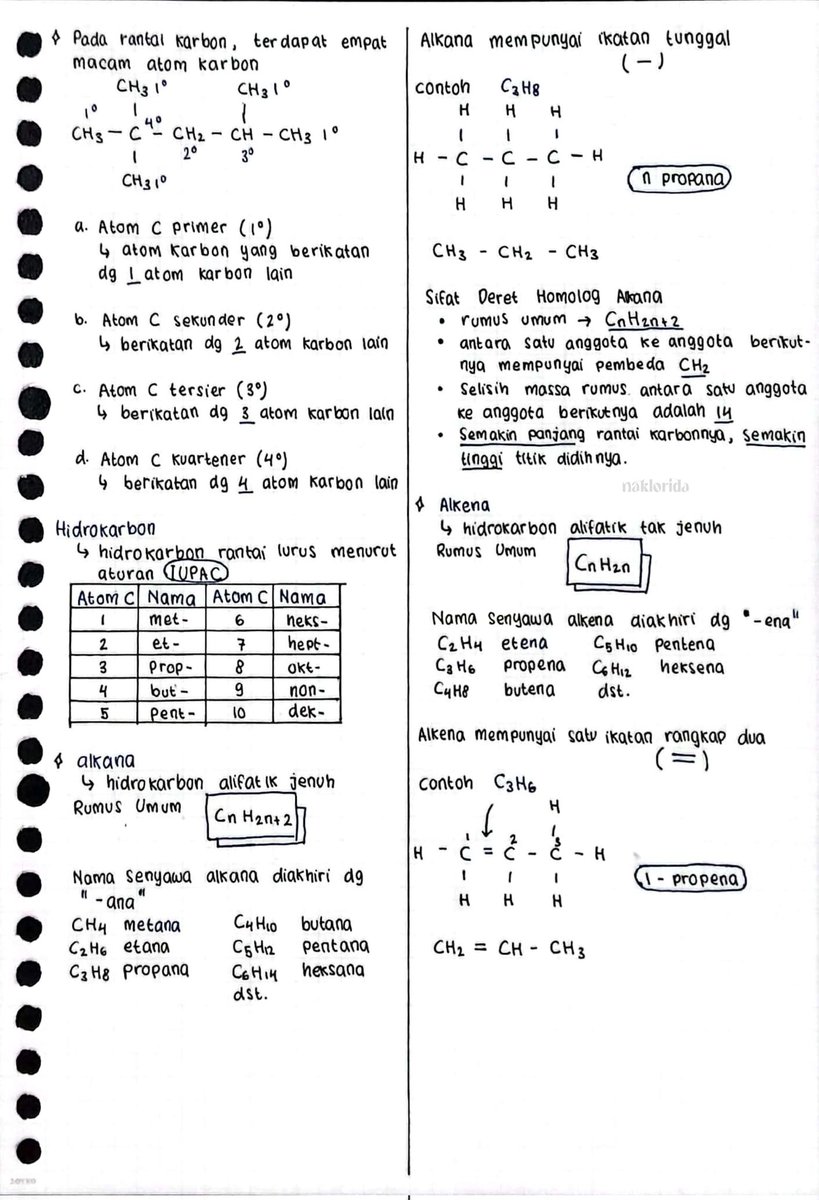 ◊ Pada rantai karbon, terdapat empat
macam atom karbon
CH3 1° CH3 1°
1° | 4° |
CH3 – C – CH2 – CH – CH3 1°
| 2° 3°
CH3 1°
a. Atom C primer (1°)
↳ atom karbon yang berikatan
dg 1 atom karbon lain
b. Atom C sekunder (2°)
↳ berikatan dg 2 atom karbon lain
c. Atom C tersier (3°)
↳ berikatan dg 3 atom karbon lain
d. Atom C kuartener (4°)
↳ berikatan dg 4 atom karbon lain
Hidrokarbon
↳ hidrokarbon rantai lurus menurut
aturan IUPAC
Atom C Nama Atom C Nama
1 met- 6 heks-
2 et- 7 hept-
3 prop- 8 okt-
4 but- 9 non-
5 pent- 10 dek-
◊ alkana
↳ hidrokarbon alifatik jenuh
Rumus Umum CnH2n+2
Nama senyawa alkana diakhiri dg
"-ana"
CH4 metana C4H10 butana
C2H6 etana C5H12 pentana
C3H8 propana C6H14 heksana
dst.
Alkana mempunyai ikatan tunggal
(–)
contoh C3H8
H H H
| | |
H – C – C – C – H
| | | n propana
H H H
CH3 – CH2 – CH3
Sifat Deret Homolog Alkana
• rumus umum → CnH2n+2
• antara satu anggota ke anggota berikut-
nya mempunyai pembeda CH2
• Selisih massa rumus antara satu anggota
ke anggota berikutnya adalah 14
• Semakin panjang rantai karbonnya, semakin
tinggi titik didihnya.
naklorida
◊ Alkena
↳ hidrokarbon alifatik tak jenuh
Rumus Umum CnH2n
Nama Senyawa alkena diakhiri dg "-ena"
C2H4 etena C5H10 pentena
C3H6 propena C6H12 heksena
C4H8 butena dst.
Alkena mempunyai satu ikatan rangkap dua
(=)
contoh C3H6
H
1 2 3
H – C = C – C – H
| | | 1 - propena
H H H
CH2 = CH – CH3
JOYKO